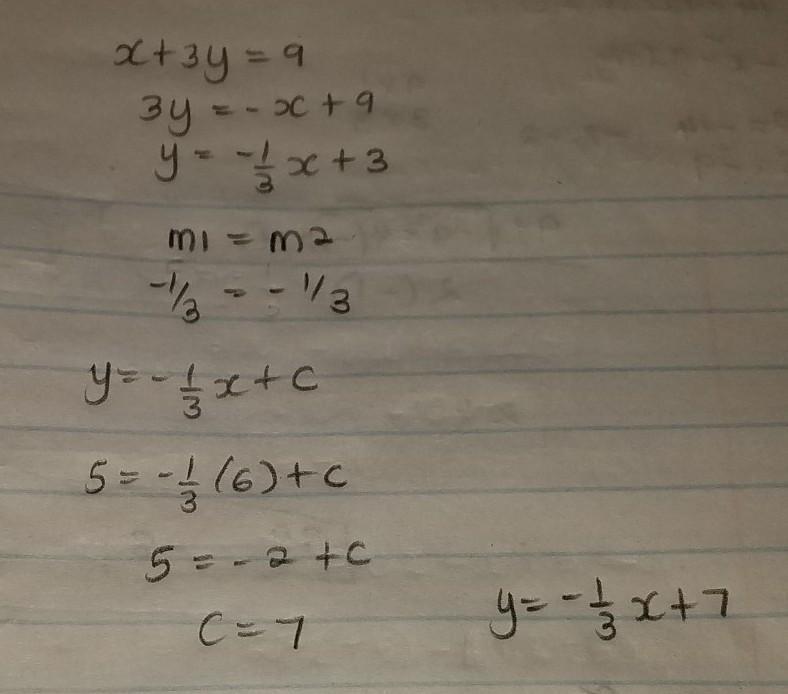 x+3y = 9
3y = -x+9
y = -1/3 x + 3
m1 = m2
-1/3 = -1/3
y = -1/3 x + c
5 = -1/3 (6) + c
5 = -2 + c
c = 7
y = -1/3 x + 7